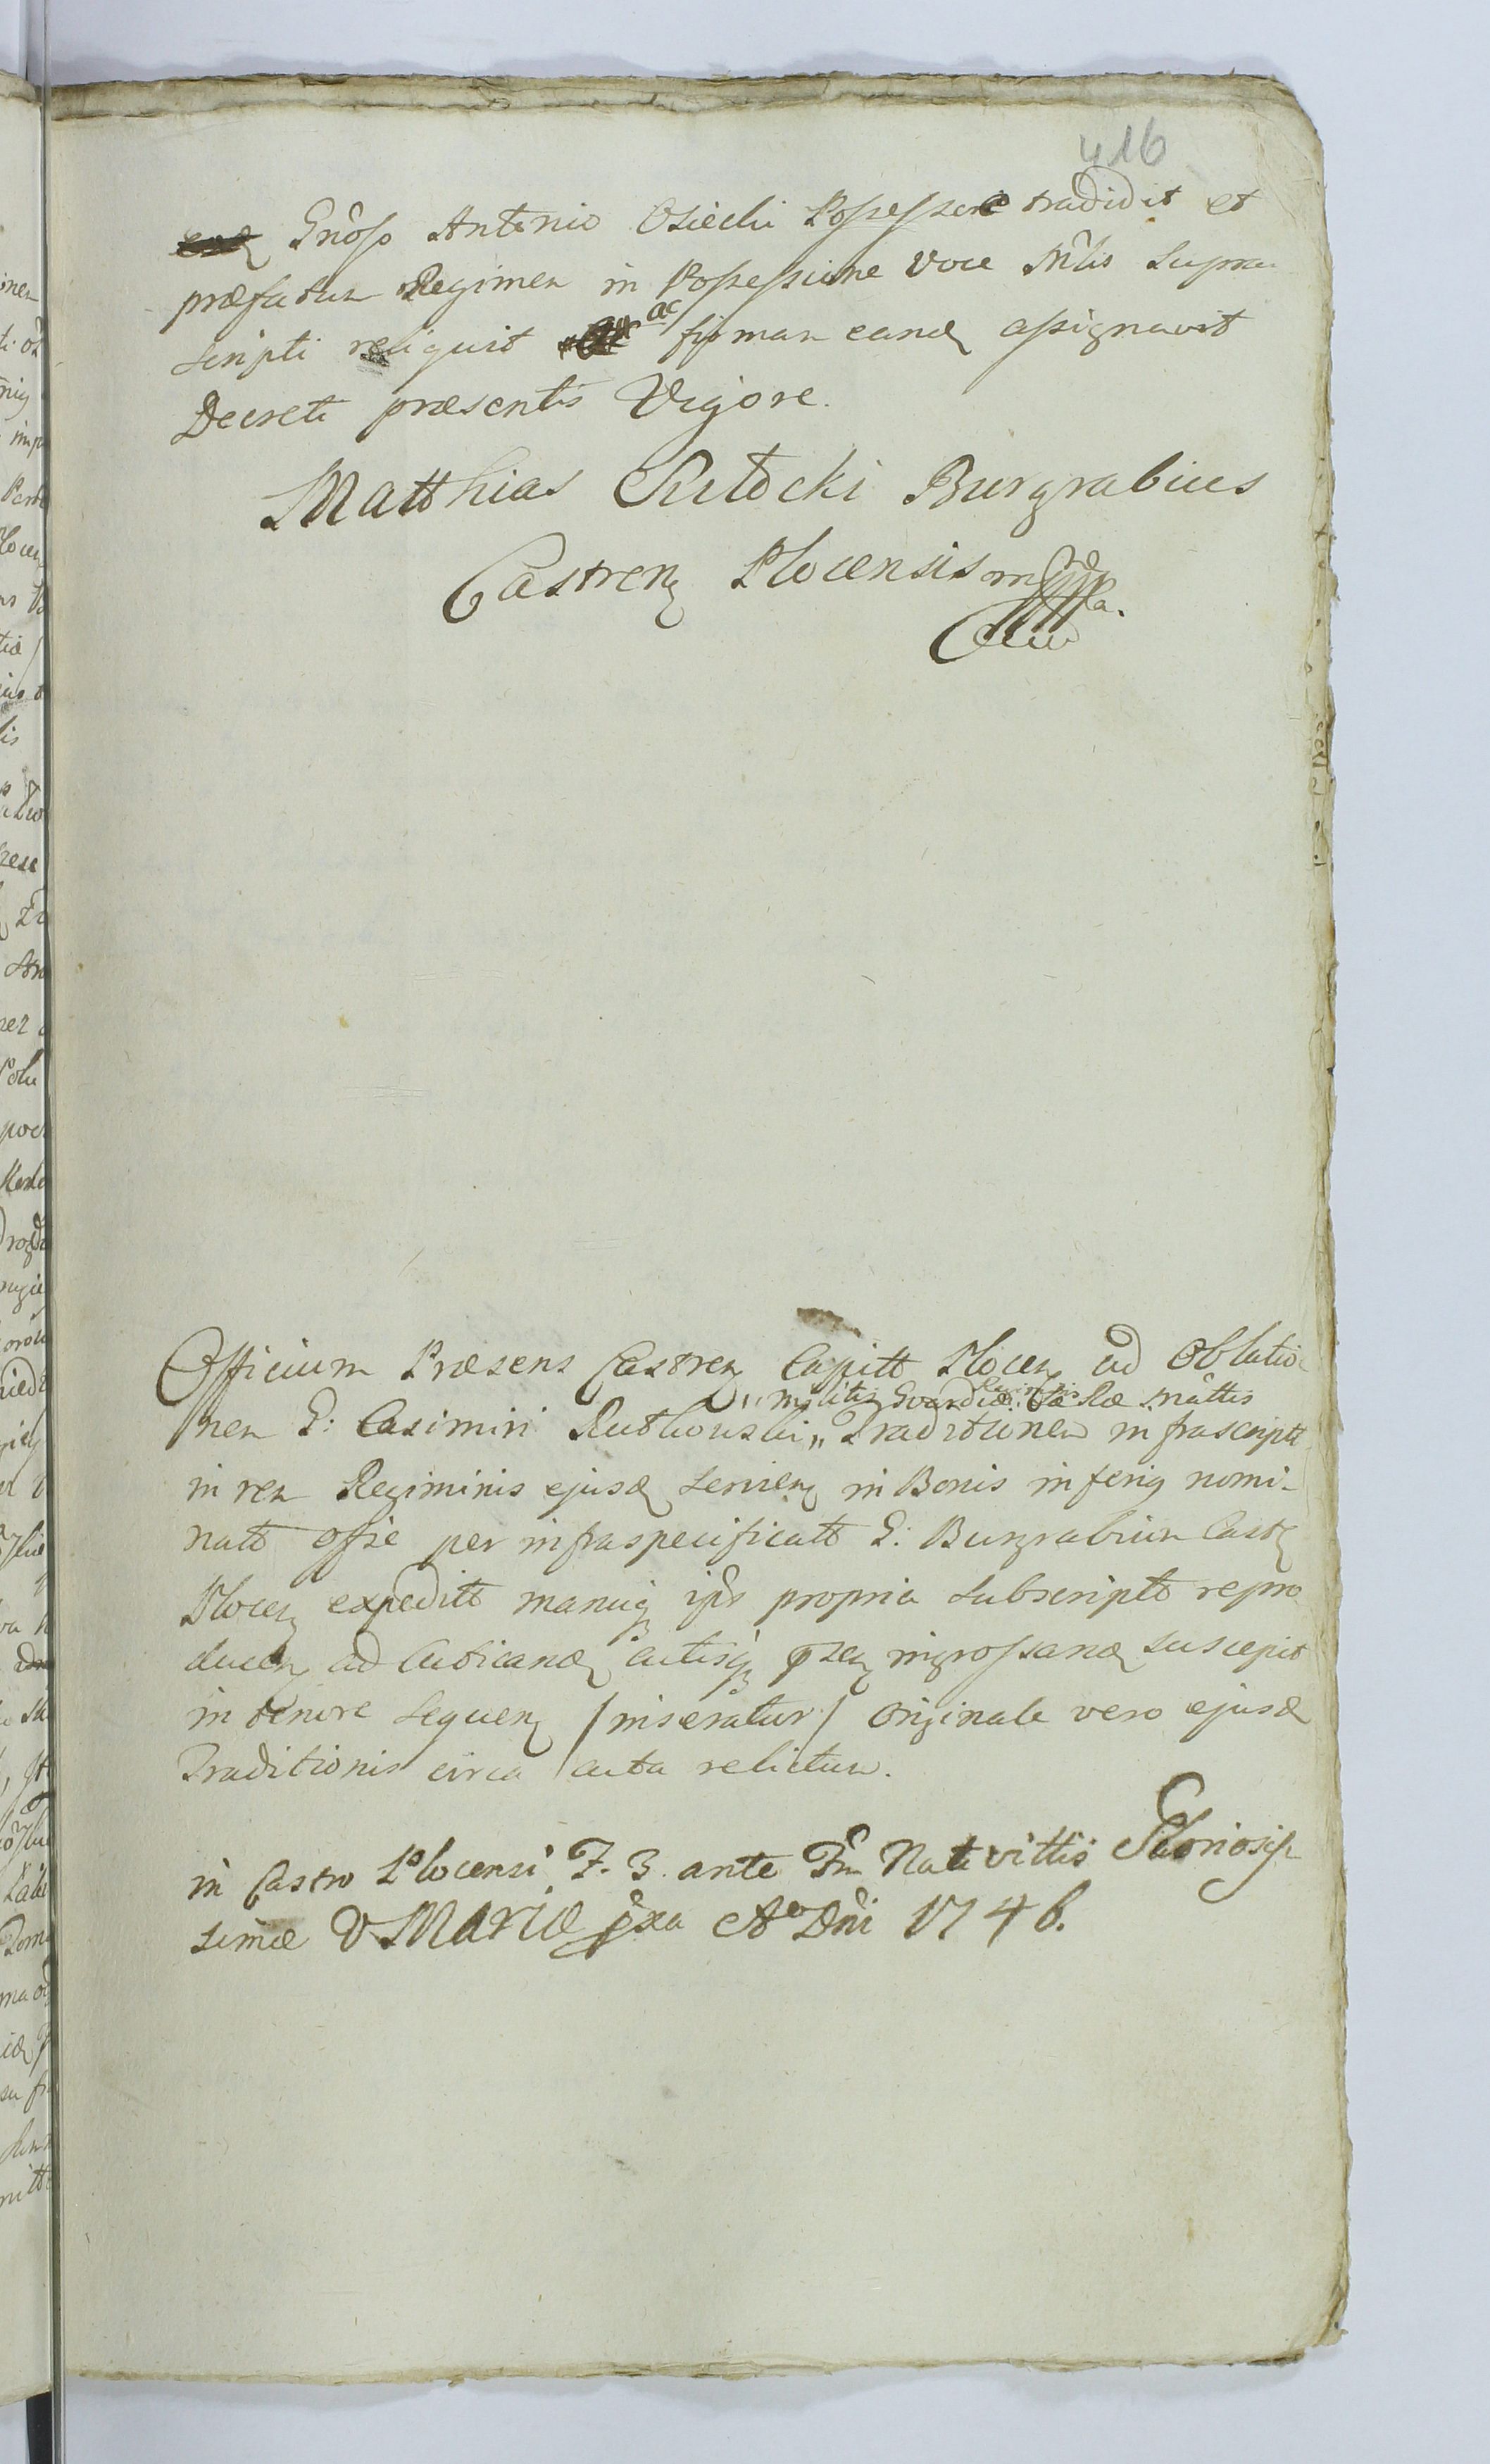 416
Gnôso Antonio Osiecki Possessore tradidit et
præfatum Regimen in Possessione voce Mtis Supra
scripti reliquit ac firmam eand assignavit
Decreti præsentis Vigore.
Matthias Rutocki Burgrabius
Castren Plocensis mppa.
Officium Præsens Castren Capitt Plocen ad Oblatio
militis Gvardiæ Regiminis Sæ Ræ Mâttis
nem G: Casimiri Rutkowski,, Traditionem infrascriptt
in rem Regiminis ejusd servien in Bonis inferig nomi-
natt offse per infraspecificatt G: Burgrabium Castr
Plocen expeditt manuq ips propria subscriptt repro
ducen ad acticand actisq præsen ingrossand suscepit
in tenore sequen /inseratur/ originale vero ejusd
Traditionis circa acta relictum.
in Castro Plocensi F. 3. ante Fm Nativittis Gloriosis
simæ V MARIÆ pxa Ao Dni 1746.